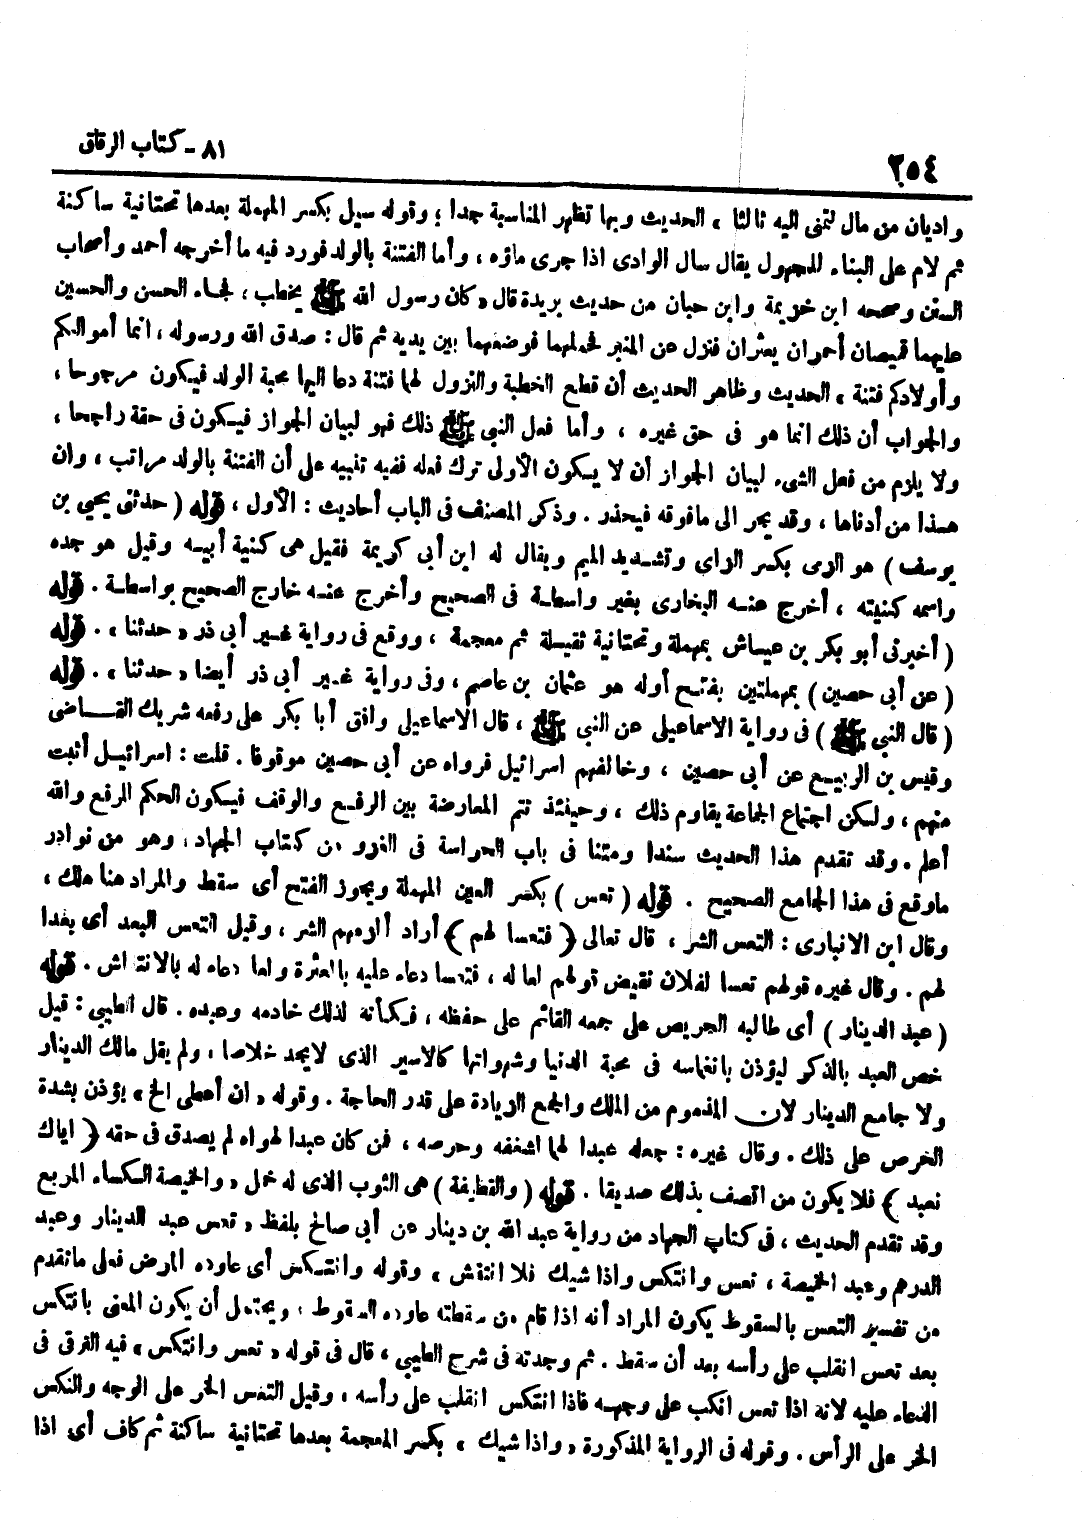 ٢٥٤
٨١ - كتاب الرقاق
واديان من مال لتمنى اليه ثالثا ، الحديث وبها تظهر المناسبة جدا ؛ وقوله سيل بكسر المهملة بعدها تحتانية ساكنة
ثم لام على البناء للمجهول يقال سال الوادى اذا جرى ماؤه ، وأما الفتنة بالولد فورد فيه ما أخرجه أحمد وأصحاب
السنن وصححه ابن خزيمة وابن حبان من حديث بريدة قال « كان رسول الله ﷺ يخطب ، فجاء الحسن والحسين
عليهما قميصان أحمران يعثران فنزل عن المنبر فحملهما فوضعهما بين يديه ثم قال : صدق الله ورسوله ، انما أموالكم
وأولادكم فتنة » الحديث وظاهر الحديث أن قطع الخطبة والنزول لهما فتنة دعا اليها محبة الولد فيكون مرجوحا ،
والجواب أن ذلك انما هو فى حق غيره ، وأما فعل النبى ﷺ ذلك فهو لبيان الجواز فيكون فى حقه راجحا ،
ولا يلزم من فعل الشىء لبيان الجواز أن لا يكون الأولى ترك فعله ففيه تنبيه على أن الفتنة بالولد مراتب ، وان
هذا من أدناها ، وقد يجر الى ما فوقه فيحذر . وذكر المصنف فى الباب أحاديث : الأول ، قوله ( حدثنى يحيى بن
يوسف ) هو الزمى بكسر الزاى وتشديد الميم ويقال له ابن أبى كريمة فقيل هى كنية أبيه وقيل هو جده
واسمه كنيته ، أخرج عنه البخارى بغير واسطة فى الصحيح وأخرج عنه خارج الصحيح بواسطة . قوله
( أخبرنى أبو بكر بن عياش بمهملة وتحتانية ثقيلة ثم معجمة ، ووقع فى رواية غير أبى ذر « حدثنا » . قوله
( عن أبى حصين ) بمهملتين بفتح أوله هو عثمان بن عاصم ، وفى رواية غير أبى ذر أيضا « حدثنا » . قوله
( قال النبى ﷺ ) فى رواية الاسماعيلى عن النبى ﷺ ، قال الاسماعيلى وافق أبا بكر على رفعه شريك القاضى
وقيس بن الربيع عن أبى حصين ، وخالفهم اسرائيل فرواه عن أبى حصين موقوفا . قلت : اسرائيل أثبت
منهم ، ولكن اجتماع الجماعة يقاوم ذلك ، وحينئذ تتم المعارضة بين الرفع والوقف فيكون الحكم الرفع والله
أعلم . وقد تقدم هذا الحديث سندا ومتنا فى باب الحراسة فى الغزو من كتاب الجهاد ، وهو من نوادر
ما وقع فى هذا الجامع الصحيح . قوله ( تعس ) بكسر العين المهملة ويجوز الفتح أى سقط والمراد هنا هلك ،
وقال ابن الانبارى : التعس الشر ، قال تعالى ﴿ فتعسا لهم ﴾ أراد ألزمهم الشر ، وقيل التعس البعد أى بعدا
لهم . وقال غيره قولهم تعسا لفلان نقيض قولهم لعا له ، فتعسا دعاء عليه بالعثرة ولعا دعاء له بالانتعاش . قوله
( عبد الدينار ) أى طالبه الحريص على جمعه القائم على حفظه ، فكأنه لذلك خادمه وعبده . قال الطيبى : قيل
خص العبد بالذكر ليؤذن بانغماسه فى محبة الدنيا وشهواتها كالاسير الذى لا يجد خلاصا ، ولم يقل مالك الدينار
ولا جامع الدينار لان المذموم من الملك والجمع الزيادة على قدر الحاجة . وقوله « ان أعطى الخ » يؤذن بشدة
الحرص على ذلك . وقال غيره : جعله عبدا لهما لشغفه وحرصه ، فمن كان عبدا لهواه لم يصدق فى حقه ﴿ اياك
نعبد ﴾ فلا يكون من اتصف بذلك صديقا . قوله ( والقطيفة ) هى الثوب الذى له خمل « والخميصة الكساء المربع
وقد تقدم الحديث ، فى كتاب الجهاد من رواية عبد الله بن دينار عن أبى صالح بلفظ « تعس عبد الدينار وعبد
الدرهم وعبد الخميصة ، تعس وانتكس واذا شيك فلا انتقش » وقوله وانتكس أى عاوده المرض فعلى ما تقدم
من تفسير التعس بالسقوط يكون المراد أنه اذا قام من سقطته عاوده السقوط ، ويحتمل أن يكون المعنى بانتكس
بعد تعس انقلب على رأسه بعد أن سقط . ثم وجدته فى شرح الطيبى ، قال فى قوله « تعس وانتكس » فيه الترقى فى
الدعاء عليه لانه اذا تعس انكب على وجهه فاذا انتكس انقلب على رأسه ، وقيل التعس الخر على الوجه والنكس
الخر على الرأس . وقوله فى الرواية المذكورة « واذا شيك » بكسر المعجمة بعدها تحتانية ساكنة ثم كاف أى اذا